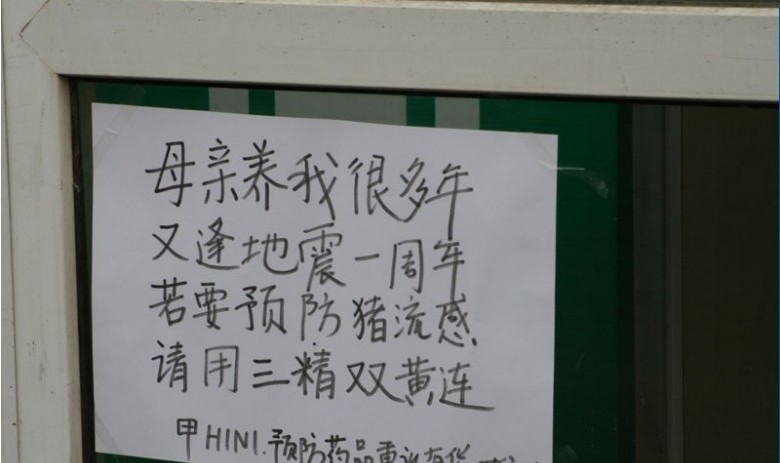 母亲养我很多年
又逢地震一周年
若要预防猪流感
请用三精双黄连
甲HINI.预防药品